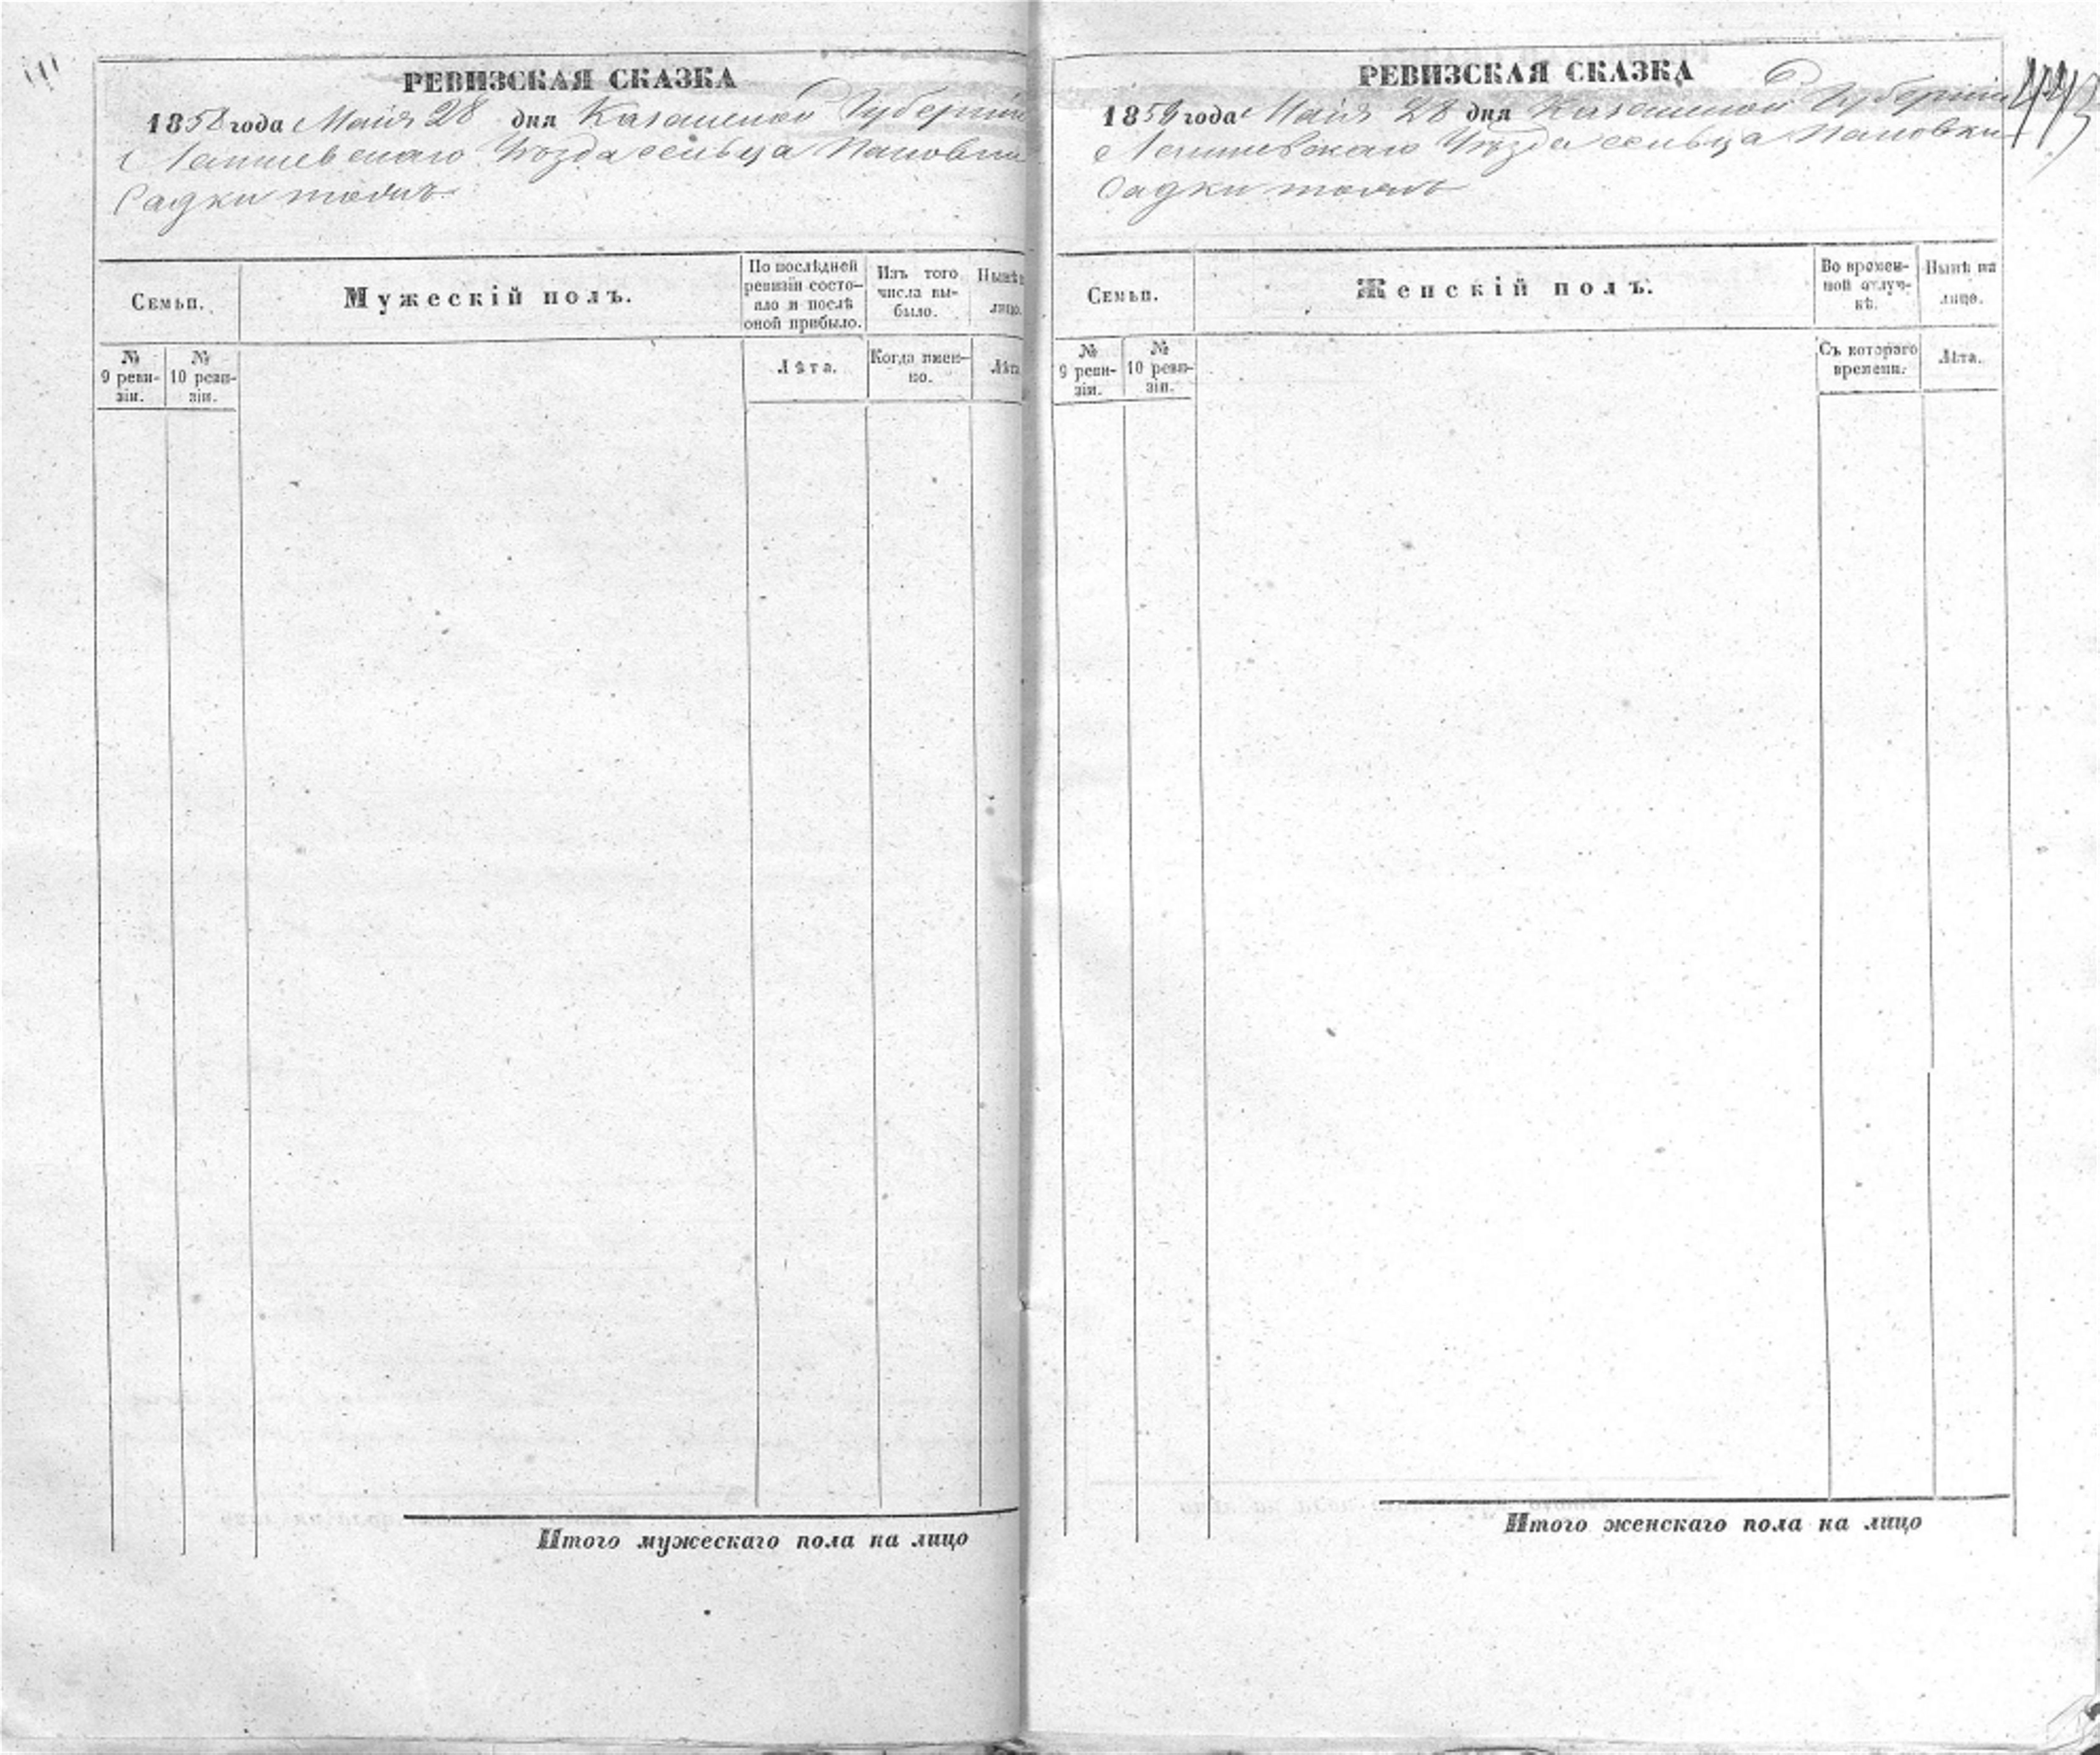 РЕВИЗСКАЯ СКАЗКА
1858 года Маія 28 дня Казанской Губерніи
Лаишевскаго Уѣзда сельца Пановки
Садки тожъ
Семьи.
Мужескій полъ.
По послѣдней
ревизіи состо-
яло и послѣ
оной прибыло.
Изъ того
числа вы-
было.
Нынѣ
лицо.
№
9 реви-
зіи.
№
10 реви-
зіи.
Лѣта.
Когда имен-
но.
Лѣта
Итого мужескаго пола на лицо
РЕВИЗСКАЯ СКАЗКА
1859 года Маія 28 дня Казанской Губерніи
Лаишевскаго Уѣзда сельца Пановки
Садки тожъ
Семьи.
Женскій полъ.
Во времен-
ной отлуч-
кѣ.
Нынѣ на
лицо.
№
9 реви-
зіи.
№
10 реви-
зіи.
Съ котораго
времени.
Лѣта.
Итого женскаго пола на лицо